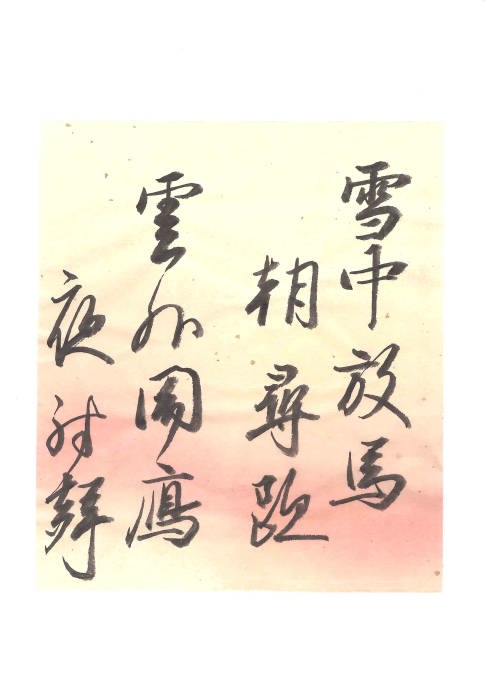 雪中放馬
朝尋跡
雲外聞鴻
夜射聲